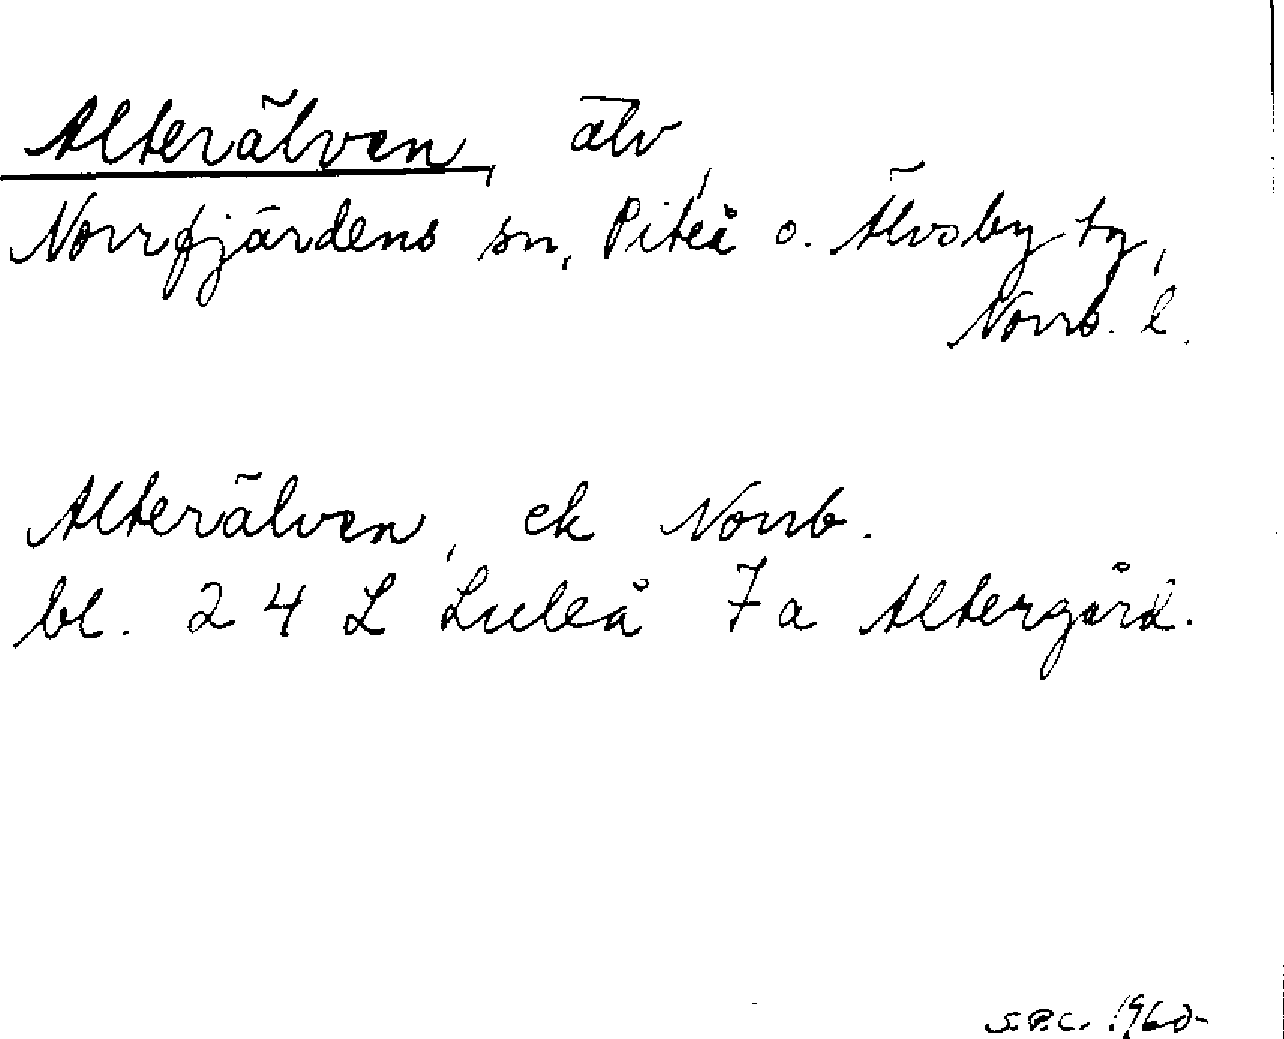 Alterälven, älv,
Norrfjärdens sn, Piteå o. Älvsby tg,
Norrb. l.
Alterälven, ek Norrb.
bl. 24 L Luleå 7a Altergård.